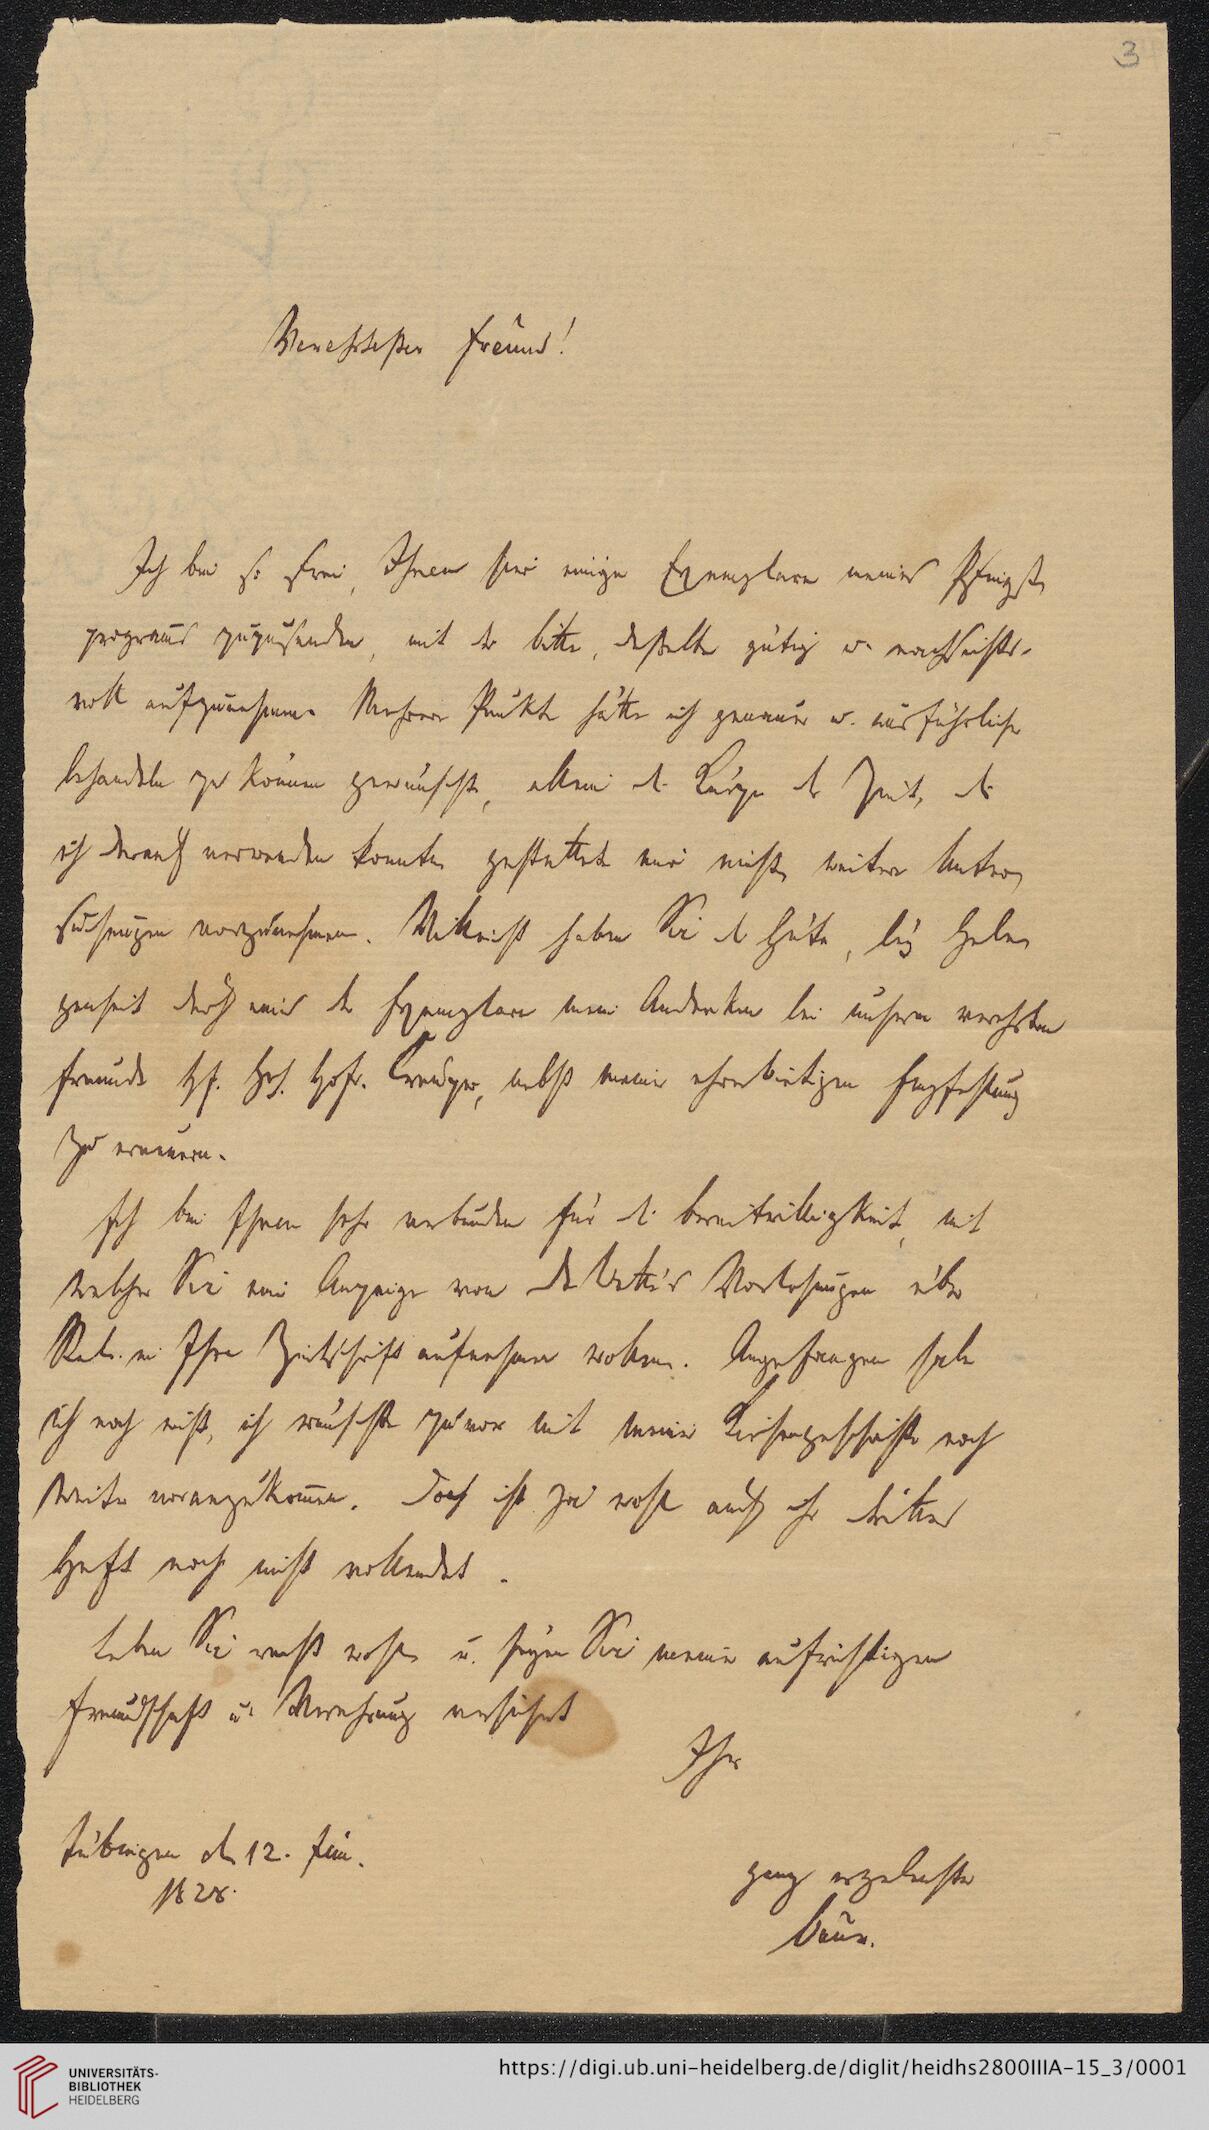 3
Verehrtester Freund!
Ich bin so frei, Ihnen hier einige Exemplare meines Pfingst-
programms zuzusenden, mit der Bitte, dasselbe gütig u. nachsichts-
voll aufzunehmen. Mehrere Punkte hätte ich genauer u. ausführlicher
behandeln zu können gewünscht, allein die Kürze der Zeit, die
ich darauf verwenden konnte, gestattete mir nicht, weitere Unter-
suchungen vorzunehmen. Vielleicht haben Sie die Güte, bei Gelegen-
genheit durch eines der Exemplare mein Andenken bei unserm verehrten
Freunde H. Geh. Hofr. Creuzer, nebst meiner ehrerbietigen Empfehlung
zu erneuern.
Ich bin Ihnen sehr verbunden für die Bereitwilligkeit, mit
welcher Sie eine Anzeige von de Wette's Vorlesungen über
Rel. in Ihre Zeitschrift aufnehmen wollen. Angefangen habe
ich noch nicht, ich wünschte zuvor mit meiner Kirchengeschichte noch
weiter voranzukommen. Doch ist ja wohl auch Ihr drittes
Heft noch nicht vollendet.
Leben Sie recht wohl u. seyen Sie meiner aufrichtigen
Freundschaft u. Verehrung versichert
Ihr
Tübingen den 12. Jun.
1828.
ganz ergebenster
Baur.
UNIVERSITÄTS-
BIBLIOTHEK
HEIDELBERG
https://digi.ub.uni-heidelberg.de/diglit/heidhs2800IIIA-15_3/0001